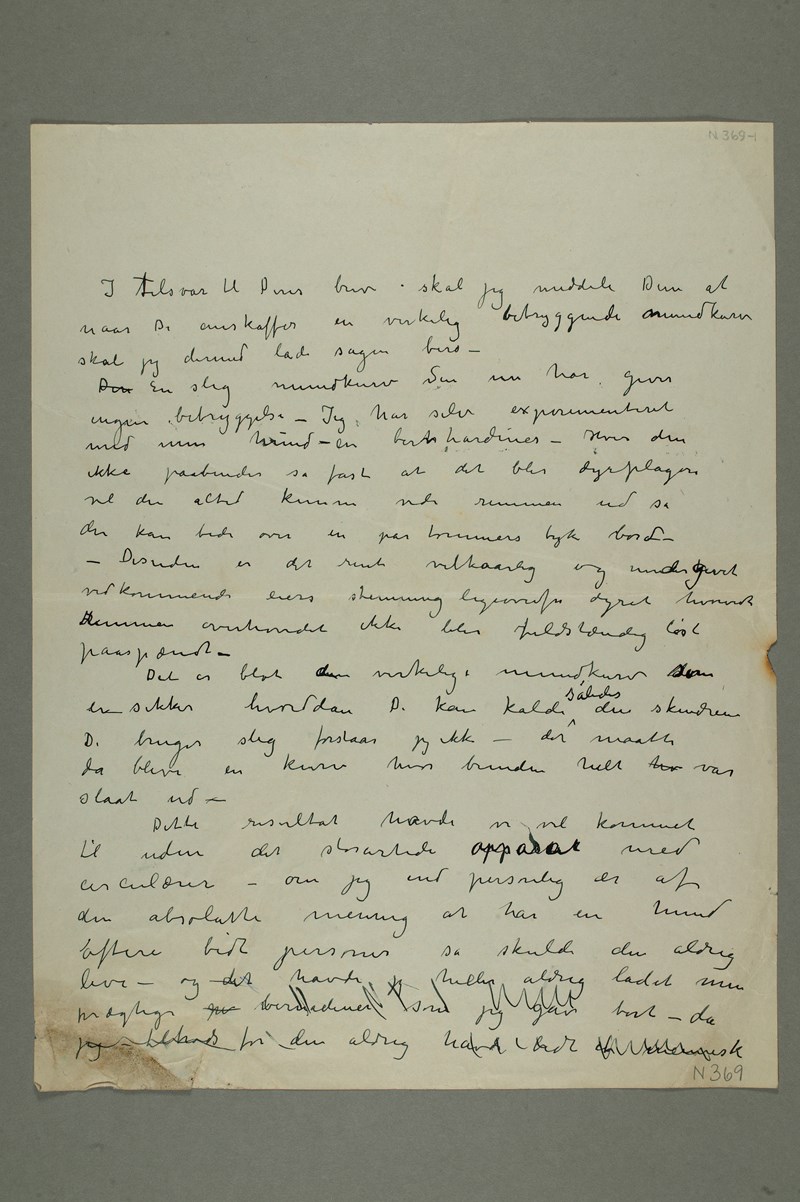 N 369-1
I tilsvar til Deres breve skal jeg meddele Dem at
naar De anskaffer en virkelig betryggende mundkurv
skal jeg dermed lade sagen bero –
Den En slig mundkurv Den nu har giver
ingen betryggelse – Jeg har selv experimenteret
med min hund – en bernhardiner – Hvis den
ikke paabindes så fast at det blir dyrplageri
vil den altid kunne vide remmen ud så
den kan bide over en par tommers tyk bord –
– Desuden er det rent vilkaarlig og undergivet
vedkommende eiers stemning ligeoverfor dyret hvorvidt
Remmen overhovedet ikke blir fuldstændig løst
paaspændt –
Det er blot den virkelige mundkurv som
er sikker hvorddan De kan kalde således den skindrem
De bruger slig forstaar jeg ikke – det maatte
da blive en kurv hvor bunden helt var
slaat ud –
Dette resultat havde vi vel kommet
til uden det storartede apparat med
circulærer – om jeg end personlig er af
den absolutte mening at har en hund
oftere bidt personer så skulde den aldrig
leve – og det havde jeg heller aldrig ladet min
prægtige bernhardiner som jeg gav bort – da
jeg for den aldrig havde bidt et mennesk
N 369